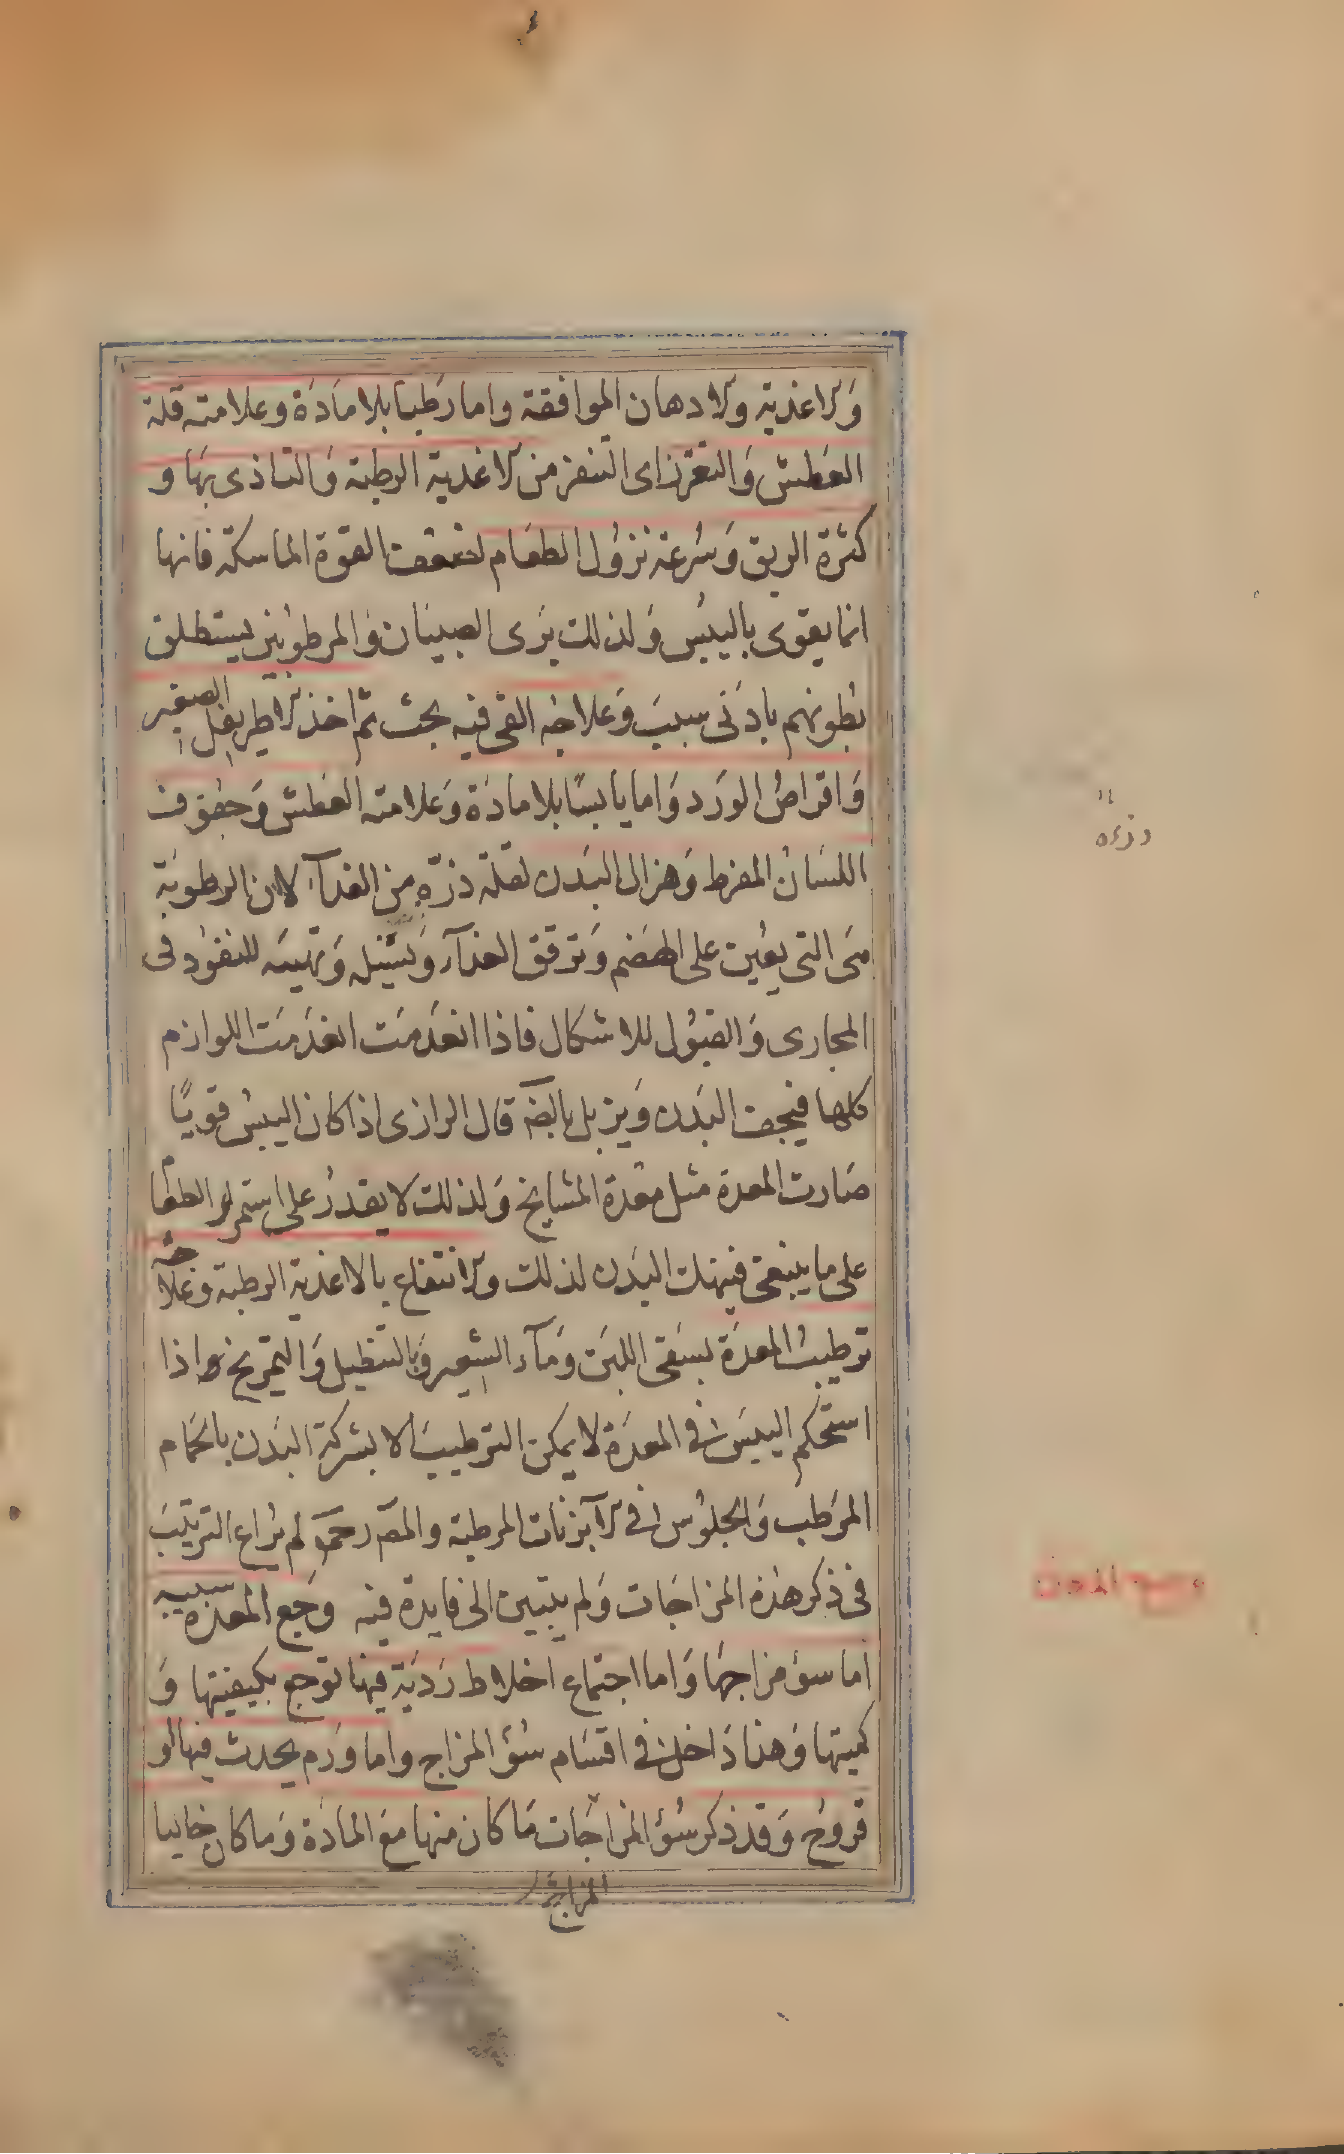 والاغذية والادهان الموافقة واما رطبا بلا مادة وعلامته قلة
العطش والتقزز اى التنفر من الاغذية الرطبة والتاذى بها و
كثرة الريق وسرعة نزول الطعام لضعف القوة الماسكة فانها
انما يقوى باليبس ولذلك يرى الصبيان والمرطوبين يستطلق
بطونهم بادنى سبب وعلاجه القى فيه بحث ثم اخذ الاطريفل الصغير
واقراص الورد واما يابسا بلا مادة وعلامته العطش وجفوف
اللسان المفرط وهزال البدن لقلة ذرّه من الغذآء لان الرطوبة
هى التى يعين على الهضم وترقق الغذآء وتسيله وتهيئه للنفوذ فى
المجارى والقبول للاشكال فاذا انعدمت انعدمت اللوازم
كلها فيجف البدن ويذبل بالضرورة قال الرازى اذا كان اليبس قويا
صارت المعدة مثل معدة المشايخ ولذلك لا يقدر على استمراء الطعام
على ما ينبغى فينهك البدن لذلك والانتفاع بالاغذية الرطبة وعلاجه
ترطيب المعدة بسقى اللبن ومآء الشعير وبالتنطيل والتمريخ واذا
استحكم اليبس فى المعدة لا يمكن الترطيب الا بشركة البدن بالحمام
المرطب والجلوس فى الآبزنات المرطبة والمص رحمه لم يراع الترتيب
فى ذكر هذه المزاجات ولم يتبين الى فايدة فيه وجع المعدة سببه
اما سؤ مزاجها واما اجتماع اخلاط ردية فيها توجع بكيفيتها و
كميتها وهذا داخل فى اقسام سؤ المزاج واما ورم يحدث فيها او
قروح وقد ذكر سؤ المزاجات ما كان منها مع المادة وما كان خاليا
وجع المعدة